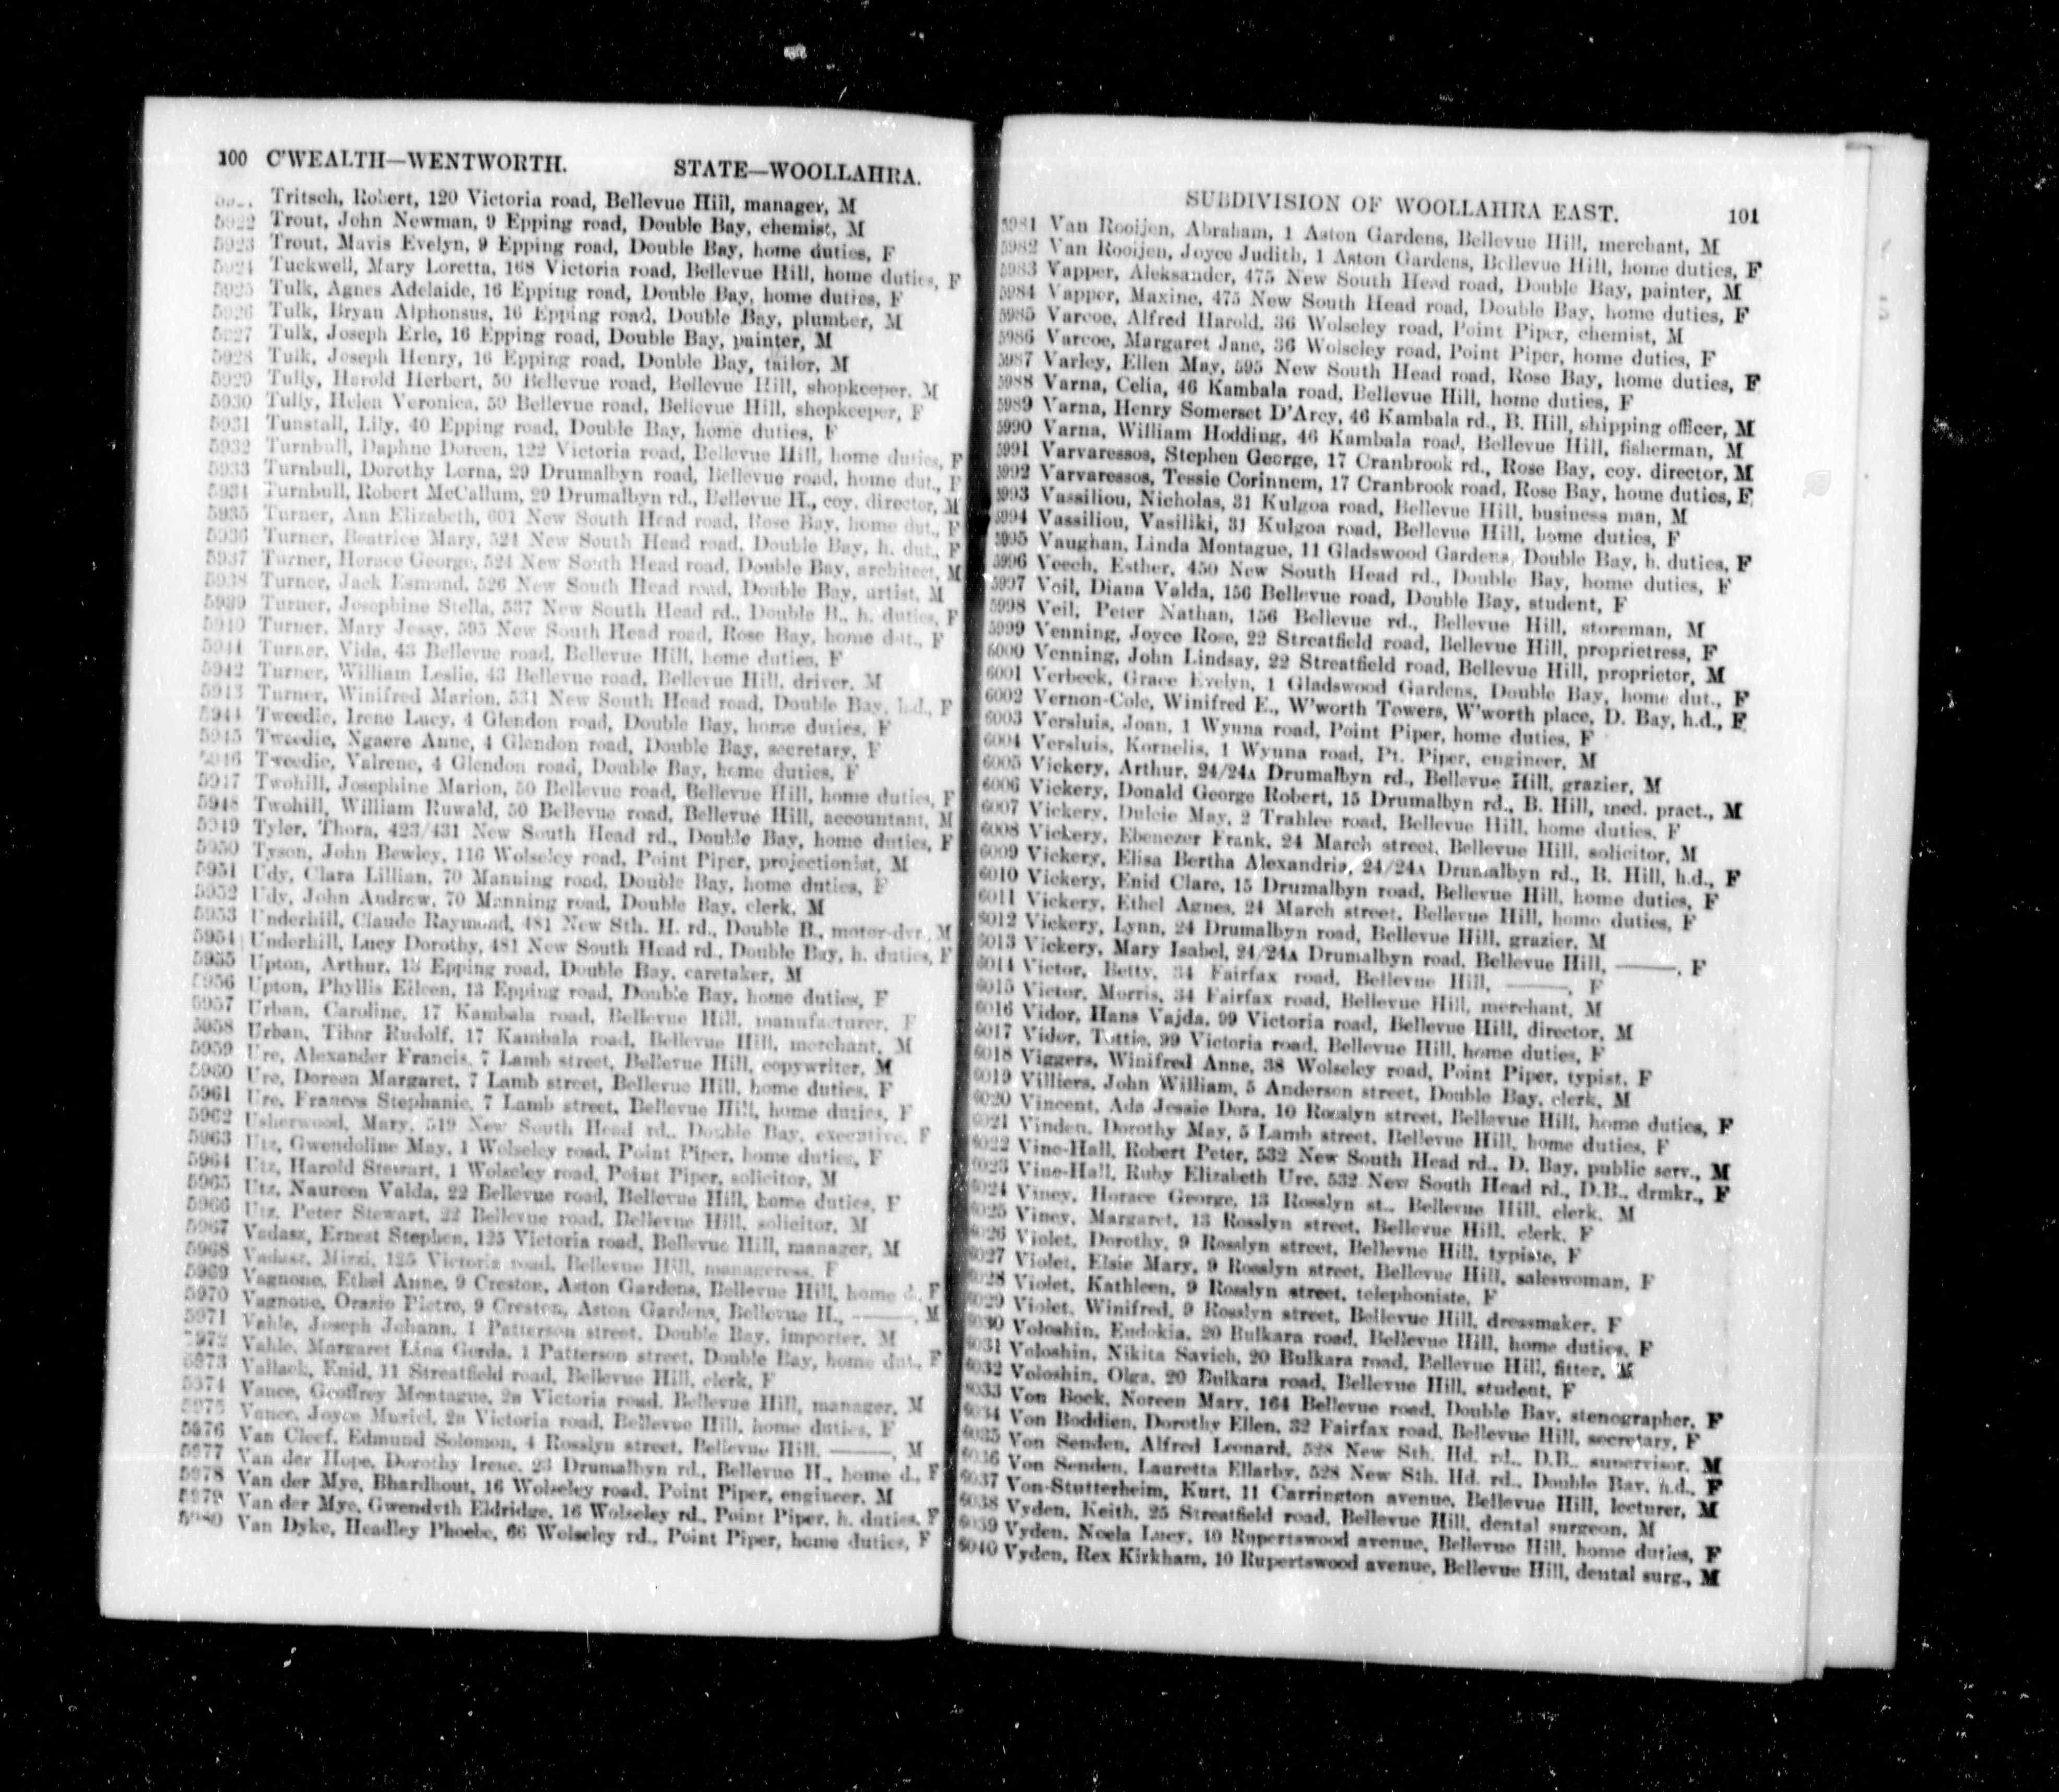 100 C'WEALTH—WENTWORTH. STATE—WOOLLAHRA.
Tritsch, Robert, 120 Victoria road, Bellevue Hill, manager, M
5922 Trout, John Newman, 9 Epping road, Double Bay, chemist, M
5923 Trout, Mavis Evelyn, 9 Epping road, Double Bay, home duties, F
5924 Tuckwell, Mary Loretta, 168 Victoria road, Bellevue Hill, home duties, F
5925 Tulk, Agnes Adelaide, 16 Epping road, Double Bay, home duties, F
5926 Tulk, Bryan Alphonsus, 16 Epping road, Double Bay, plumber, M
5927 Tulk, Joseph Erle, 16 Epping road, Double Bay, painter, M
5928 Tulk, Joseph Henry, 16 Epping road, Double Bay, tailor, M
5929 Tully, Harold Herbert, 50 Bellevue road, Bellevue Hill, shopkeeper, M
5930 Tully, Helen Veronica, 50 Bellevue road, Bellevue Hill, shopkeeper, F
5931 Tunstall, Lily, 40 Epping road, Double Bay, home duties, F
5932 Turnbull, Daphne Doreen, 122 Victoria road, Bellevue Hill, home duties, F
5933 Turnbull, Dorothy Lorna, 29 Drumalbyn road, Bellevue road, home dut., F
5934 Turnbull, Robert McCallum, 29 Drumalbyn rd., Bellevue H., coy. director, M
5935 Turner, Ann Elizabeth, 601 New South Head road, Rose Bay, home dut., F
5936 Turner, Beatrice Mary, 524 New South Head road, Double Bay, h. dut., F
5937 Turner, Horace George, 524 New South Head road, Double Bay, architect, M
5938 Turner, Jack Esmond, 526 New South Head road, Double Bay, artist, M
5939 Turner, Josephine Stella, 537 New South Head rd., Double B., h. duties, F
5940 Turner, Mary Jessy, 595 New South Head road, Rose Bay, home dut., F
5941 Turner, Vida, 43 Bellevue road, Bellevue Hill, home duties, F
5942 Turner, William Leslie, 43 Bellevue road, Bellevue Hill, driver, M
5943 Turner, Winifred Marion, 531 New South Head road, Double Bay, h.d., F
5944 Tweedie, Irene Lucy, 4 Glendon road, Double Bay, home duties, F
5945 Tweedie, Ngaere Anne, 4 Glendon road, Double Bay, secretary, F
5946 Tweedie, Valrene, 4 Glendon road, Double Bay, home duties, F
5947 Twohill, Josephine Marion, 50 Bellevue road, Bellevue Hill, home duties, F
5948 Twohill, William Ruwald, 50 Bellevue road, Bellevue Hill, accountant, M
5949 Tyler, Thora, 423/431 New South Head rd., Double Bay, home duties, F
5950 Tyson, John Bewley, 116 Wolseley road, Point Piper, projectionist, M
5951 Udy, Clara Lillian, 70 Manning road, Double Bay, home duties, F
5952 Udy, John Andrew, 70 Manning road, Double Bay, clerk, M
5953 Underhill, Claude Raymond, 481 New Sth. H. rd., Double B., motor-dvr., M
5954 Underhill, Lucy Dorothy, 481 New South Head rd., Double Bay, h. duties, F
5955 Upton, Arthur, 13 Epping road, Double Bay, caretaker, M
5956 Upton, Phyllis Eileen, 13 Epping road, Double Bay, home duties, F
5957 Urban, Caroline, 17 Kambala road, Bellevue Hill, manufacturer, F
5958 Urban, Tibor Rudolf, 17 Kambala road, Bellevue Hill, merchant, M
5959 Ure, Alexander Francis, 7 Lamb street, Bellevue Hill, copywriter, M
5960 Ure, Doreen Margaret, 7 Lamb street, Bellevue Hill, home duties, F
5961 Ure, Frances Stephanie, 7 Lamb street, Bellevue Hill, home duties, F
5962 Usherwood, Mary, 519 New South Head rd., Double Bay, executive, F
5963 Utz, Gwendoline May, 1 Wolseley road, Point Piper, home duties, F
5964 Utz, Harold Stewart, 1 Wolseley road, Point Piper, solicitor, M
5965 Utz, Naureen Valda, 22 Bellevue road, Bellevue Hill, home duties, F
5966 Utz, Peter Stewart, 22 Bellevue road, Bellevue Hill, solicitor, M
5967 Vadasz, Ernest Stephen, 125 Victoria road, Bellevue Hill, manager, M
5968 Vadasz, Mizzi, 125 Victoria road, Bellevue Hill, manageress, F
5969 Vagnone, Ethel Anne, 9 Creston, Aston Gardens, Bellevue Hill, home d., F
5970 Vagnone, Orazio Pietro, 9 Creston, Aston Gardens, Bellevue H., ———, M
5971 Vahle, Joseph Johann, 1 Patterson street, Double Bay, importer, M
5972 Vahle, Margaret Lina Gerda, 1 Patterson street, Double Bay, home dut., F
5973 Vallack, Enid, 11 Streatfield road, Bellevue Hill, clerk, F
5974 Vance, Geoffrey Montague, 2a Victoria road, Bellevue Hill, manager, M
5975 Vance, Joyce Muriel, 2a Victoria road, Bellevue Hill, home duties, F
5976 Van Cleef, Edmund Solomon, 4 Rosslyn street, Bellevue Hill, ———, M
5977 Van der Hope, Dorothy Irene, 23 Drumalbyn rd., Bellevue H., home d., F
5978 Van der Mye, Bhardhout, 16 Wolseley road, Point Piper, engineer, M
5979 Van der Mye, Gwendyth Eldridge, 16 Wolseley rd., Point Piper, h. duties, F
5980 Van Dyke, Headley Phoebe, 66 Wolseley rd., Point Piper, home duties, F
SUBDIVISION OF WOOLLAHRA EAST. 101
5981 Van Rooijen, Abraham, 1 Aston Gardens, Bellevue Hill, merchant, M
5982 Van Rooijen, Joyce Judith, 1 Aston Gardens, Bellevue Hill, home duties, F
5983 Vapper, Aleksander, 475 New South Head road, Double Bay, painter, M
5984 Vapper, Maxine, 475 New South Head road, Double Bay, home duties, F
5985 Varcoe, Alfred Harold, 36 Wolseley road, Point Piper, chemist, M
5986 Varcoe, Margaret Jane, 36 Wolseley road, Point Piper, home duties, F
5987 Varley, Ellen May, 595 New South Head road, Rose Bay, home duties, F
5988 Varna, Celia, 46 Kambala road, Bellevue Hill, home duties, F
5989 Varna, Henry Somerset D'Arcy, 46 Kambala rd., B. Hill, shipping officer, M
5990 Varna, William Hodding, 46 Kambala road, Bellevue Hill, fisherman, M
5991 Varvaressos, Stephen George, 17 Cranbrook rd., Rose Bay, coy. director, M
5992 Varvaressos, Tessie Corinnem, 17 Cranbrook road, Rose Bay, home duties, F
5993 Vassiliou, Nicholas, 31 Kulgoa road, Bellevue Hill, business man, M
5994 Vassiliou, Vasiliki, 31 Kulgoa road, Bellevue Hill, home duties, F
5995 Vaughan, Linda Montague, 11 Gladswood Gardens, Double Bay, h. duties, F
5996 Veech, Esther, 450 New South Head rd., Double Bay, home duties, F
5997 Veil, Diana Valda, 156 Bellevue road, Double Bay, student, F
5998 Veil, Peter Nathan, 156 Bellevue rd., Bellevue Hill, storeman, M
5999 Venning, Joyce Rose, 22 Streatfield road, Bellevue Hill, proprietress, F
6000 Venning, John Lindsay, 22 Streatfield road, Bellevue Hill, proprietor, M
6001 Verbeek, Grace Evelyn, 1 Gladswood Gardens, Double Bay, home dut., F
6002 Vernon-Cole, Winifred E., W'worth Towers, W'worth place, D. Bay, h.d., F
6003 Versluis, Joan, 1 Wynna road, Point Piper, home duties, F
6004 Versluis, Kornelis, 1 Wynna road, Pt. Piper, engineer, M
6005 Vickery, Arthur, 24/24A Drumalbyn rd., Bellevue Hill, grazier, M
6006 Vickery, Donald George Robert, 15 Drumalbyn rd., B. Hill, med. pract., M
6007 Vickery, Dulcie May, 2 Trahlee road, Bellevue Hill, home duties, F
6008 Vickery, Ebenezer Frank, 24 March street, Bellevue Hill, solicitor, M
6009 Vickery, Elisa Bertha Alexandria, 24/24A Drumalbyn rd., B. Hill, h.d., F
6010 Vickery, Enid Clare, 15 Drumalbyn road, Bellevue Hill, home duties, F
6011 Vickery, Ethel Agnes, 24 March street, Bellevue Hill, home duties, F
6012 Vickery, Lynn, 24 Drumalbyn road, Bellevue Hill, grazier, M
6013 Vickery, Mary Isabel, 24/24A Drumalbyn road, Bellevue Hill, ———, F
6014 Victor, Betty, 34 Fairfax road, Bellevue Hill, ———, F
6015 Victor, Morris, 34 Fairfax road, Bellevue Hill, merchant, M
6016 Vidor, Hans Vajda, 99 Victoria road, Bellevue Hill, director, M
6017 Vidor, Tottie, 99 Victoria road, Bellevue Hill, home duties, F
6018 Viggers, Winifred Anne, 38 Wolseley road, Point Piper, typist, F
6019 Villiers, John William, 5 Anderson street, Double Bay, clerk, M
6020 Vincent, Ada Jessie Dora, 10 Rosslyn street, Bellevue Hill, home duties, F
6021 Vinden, Dorothy May, 5 Lamb street, Bellevue Hill, home duties, F
6022 Vine-Hall, Robert Peter, 532 New South Head rd., D. Bay, public serv., M
6023 Vine-Hall, Ruby Elizabeth Ure, 532 New South Head rd., D.B., drmkr., F
6024 Viney, Horace George, 13 Rosslyn st., Bellevue Hill, clerk, M
6025 Viney, Margaret, 13 Rosslyn street, Bellevue Hill, clerk, F
6026 Violet, Dorothy, 9 Rosslyn street, Bellevue Hill, typiste, F
6027 Violet, Elsie Mary, 9 Rosslyn street, Bellevue Hill, saleswoman, F
6028 Violet, Kathleen, 9 Rosslyn street, telephoniste, F
6029 Violet, Winifred, 9 Rosslyn street, Bellevue Hill, dressmaker, F
6030 Voloshin, Eudokia, 20 Bulkara road, Bellevue Hill, home duties, F
6031 Voloshin, Nikita Savich, 20 Bulkara road, Bellevue Hill, fitter, M
6032 Voloshin, Olga, 20 Bulkara road, Bellevue Hill, student, F
6033 Von Bock, Noreen Mary, 164 Bellevue road, Double Bay, stenographer, F
6034 Von Boddien, Dorothy Ellen, 32 Fairfax road, Bellevue Hill, secretary, F
6035 Von Senden, Alfred Leonard, 528 New Sth. Hd. rd., D.B., supervisor, M
6036 Von Senden, Lauretta Ellarby, 528 New Sth. Hd. rd., Double Bay, h.d., F
6037 Von-Stutterheim, Kurt, 11 Carrington avenue, Bellevue Hill, lecturer, M
6038 Vyden, Keith, 25 Streatfield road, Bellevue Hill, dental surgeon, M
6039 Vyden, Noela Lucy, 10 Rupertswood avenue, Bellevue Hill, home duties, F
6040 Vyden, Rex Kirkham, 10 Rupertswood avenue, Bellevue Hill, dental surg., M